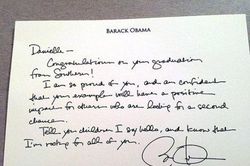 BARACK OBAMA
Danielle —
Congratulations on your graduation
from Southern!
I am so proud of you, and am confident
that your example will have a positive
impact for others who are looking for a second
chance.
Tell you children I say hello, and know that
I'm rooting for all of you.